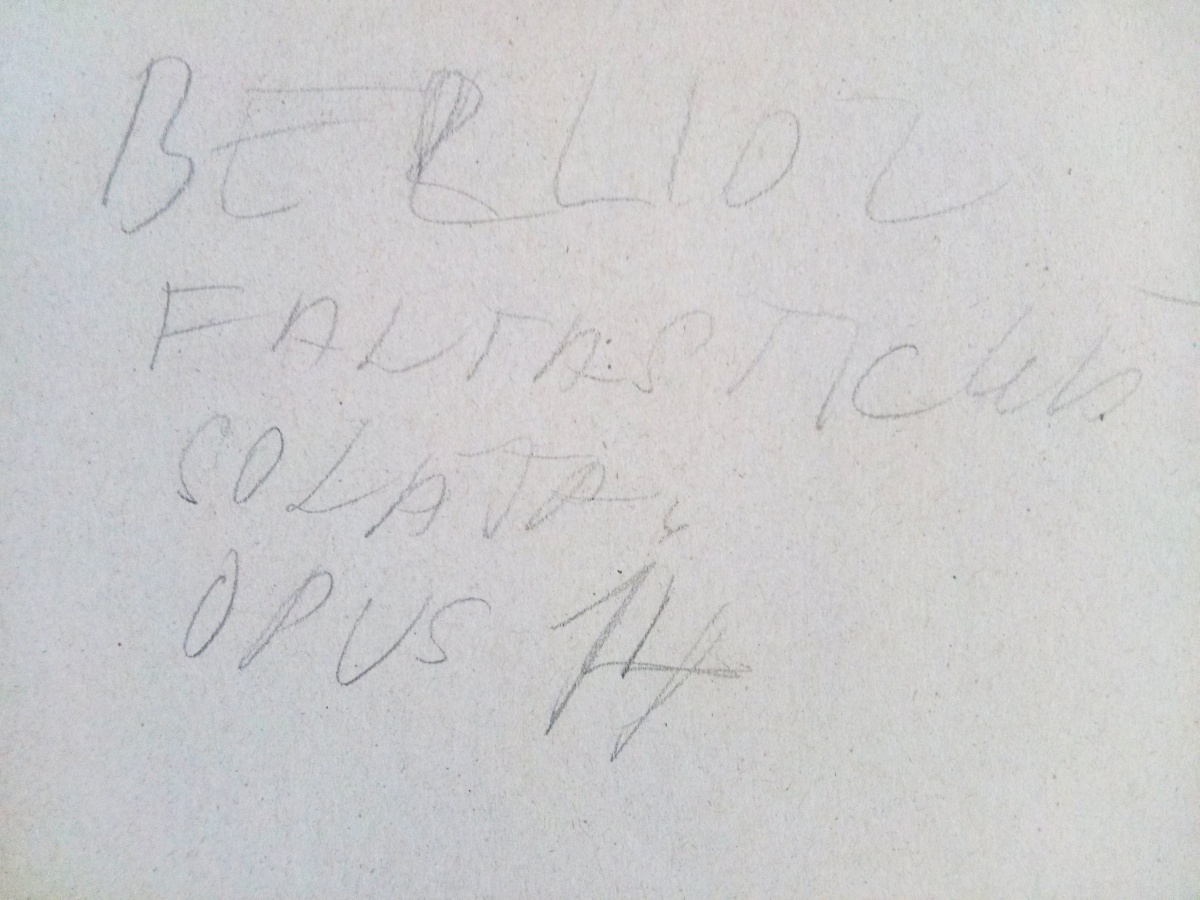 BERLIOZ
FANTASTICKÁ
SONATA,
OPUS 14